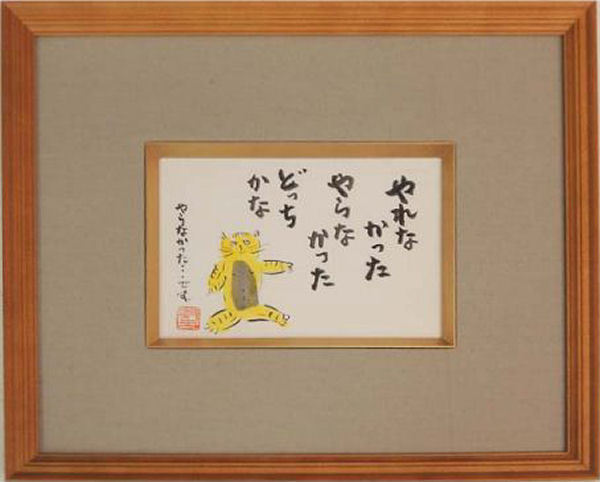 やれな
かった
やらな
かった
どっち
かな
やらなかった…です